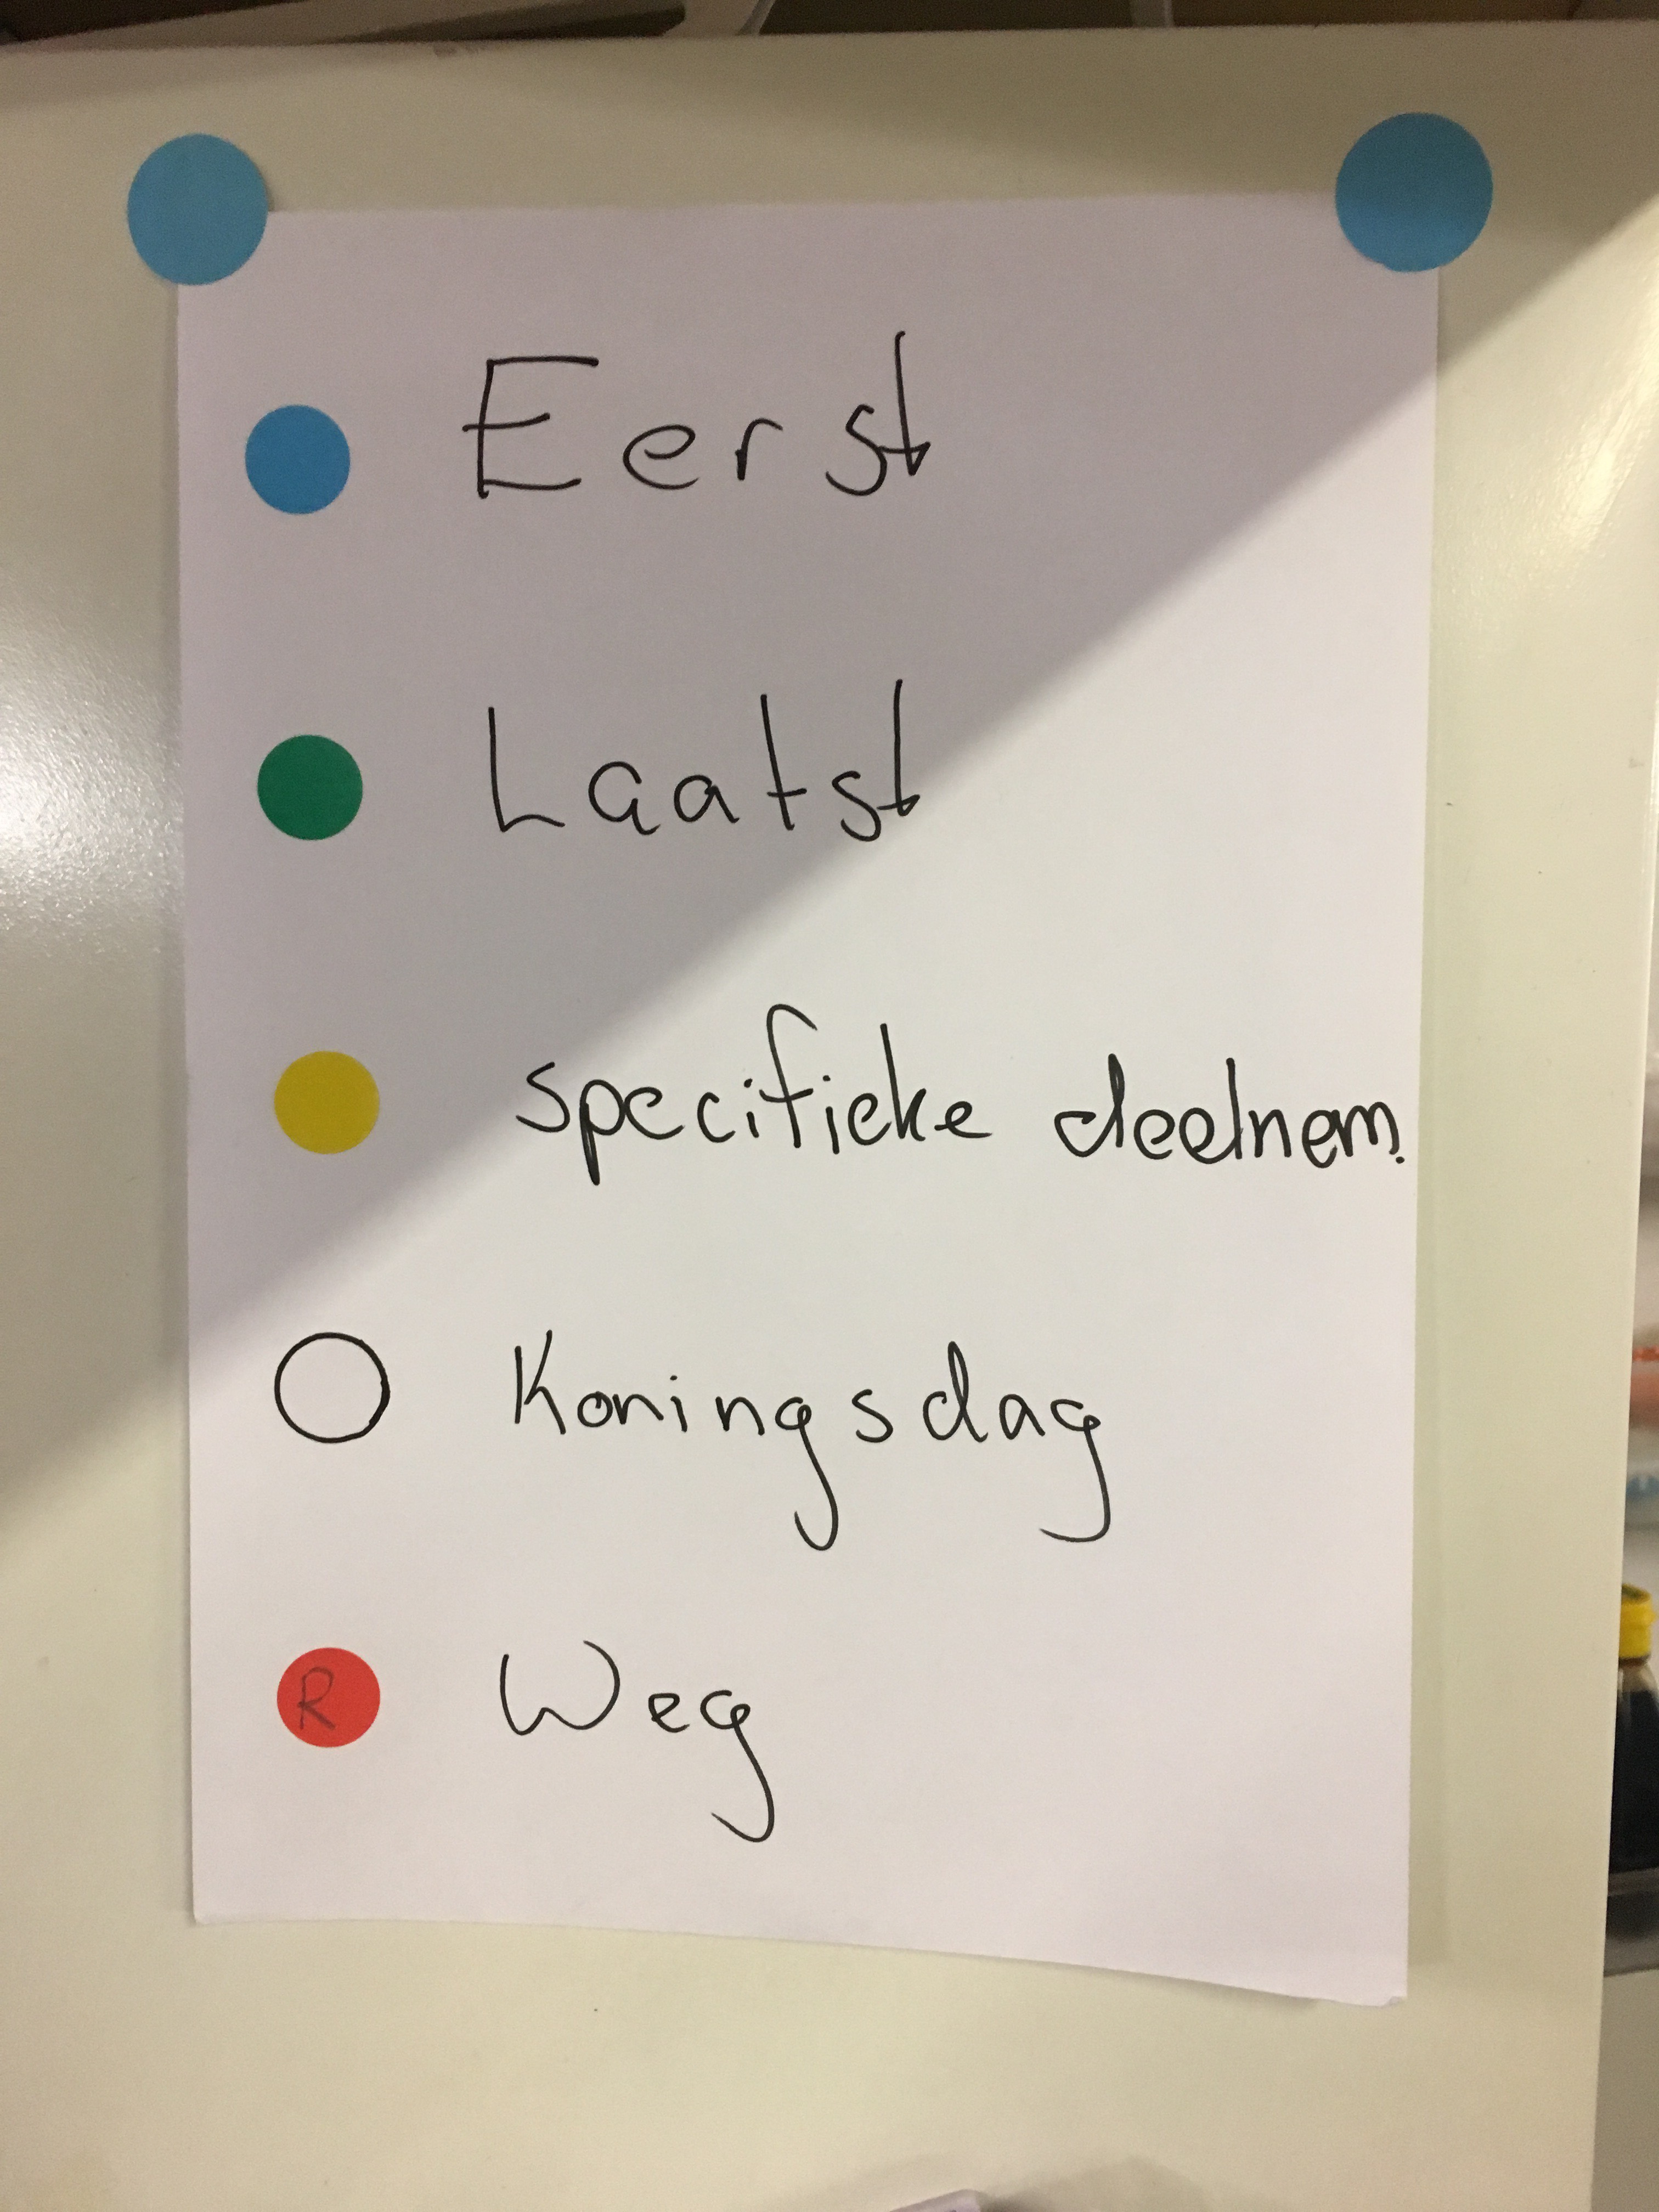 Eerst
Laatst
specifieke deelnem.
Koningsdag
R Weg